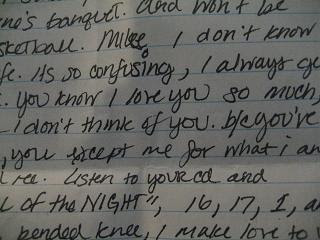 banquet. And won't be
Mike, I don't know
its so confusing, I always
. You know I love you so much,
I don't think of you. b/c you've
, you except me for what i am
Listen to your cd and
of the NIGHT", 16, 17, 1, a
bended knee, I make love to